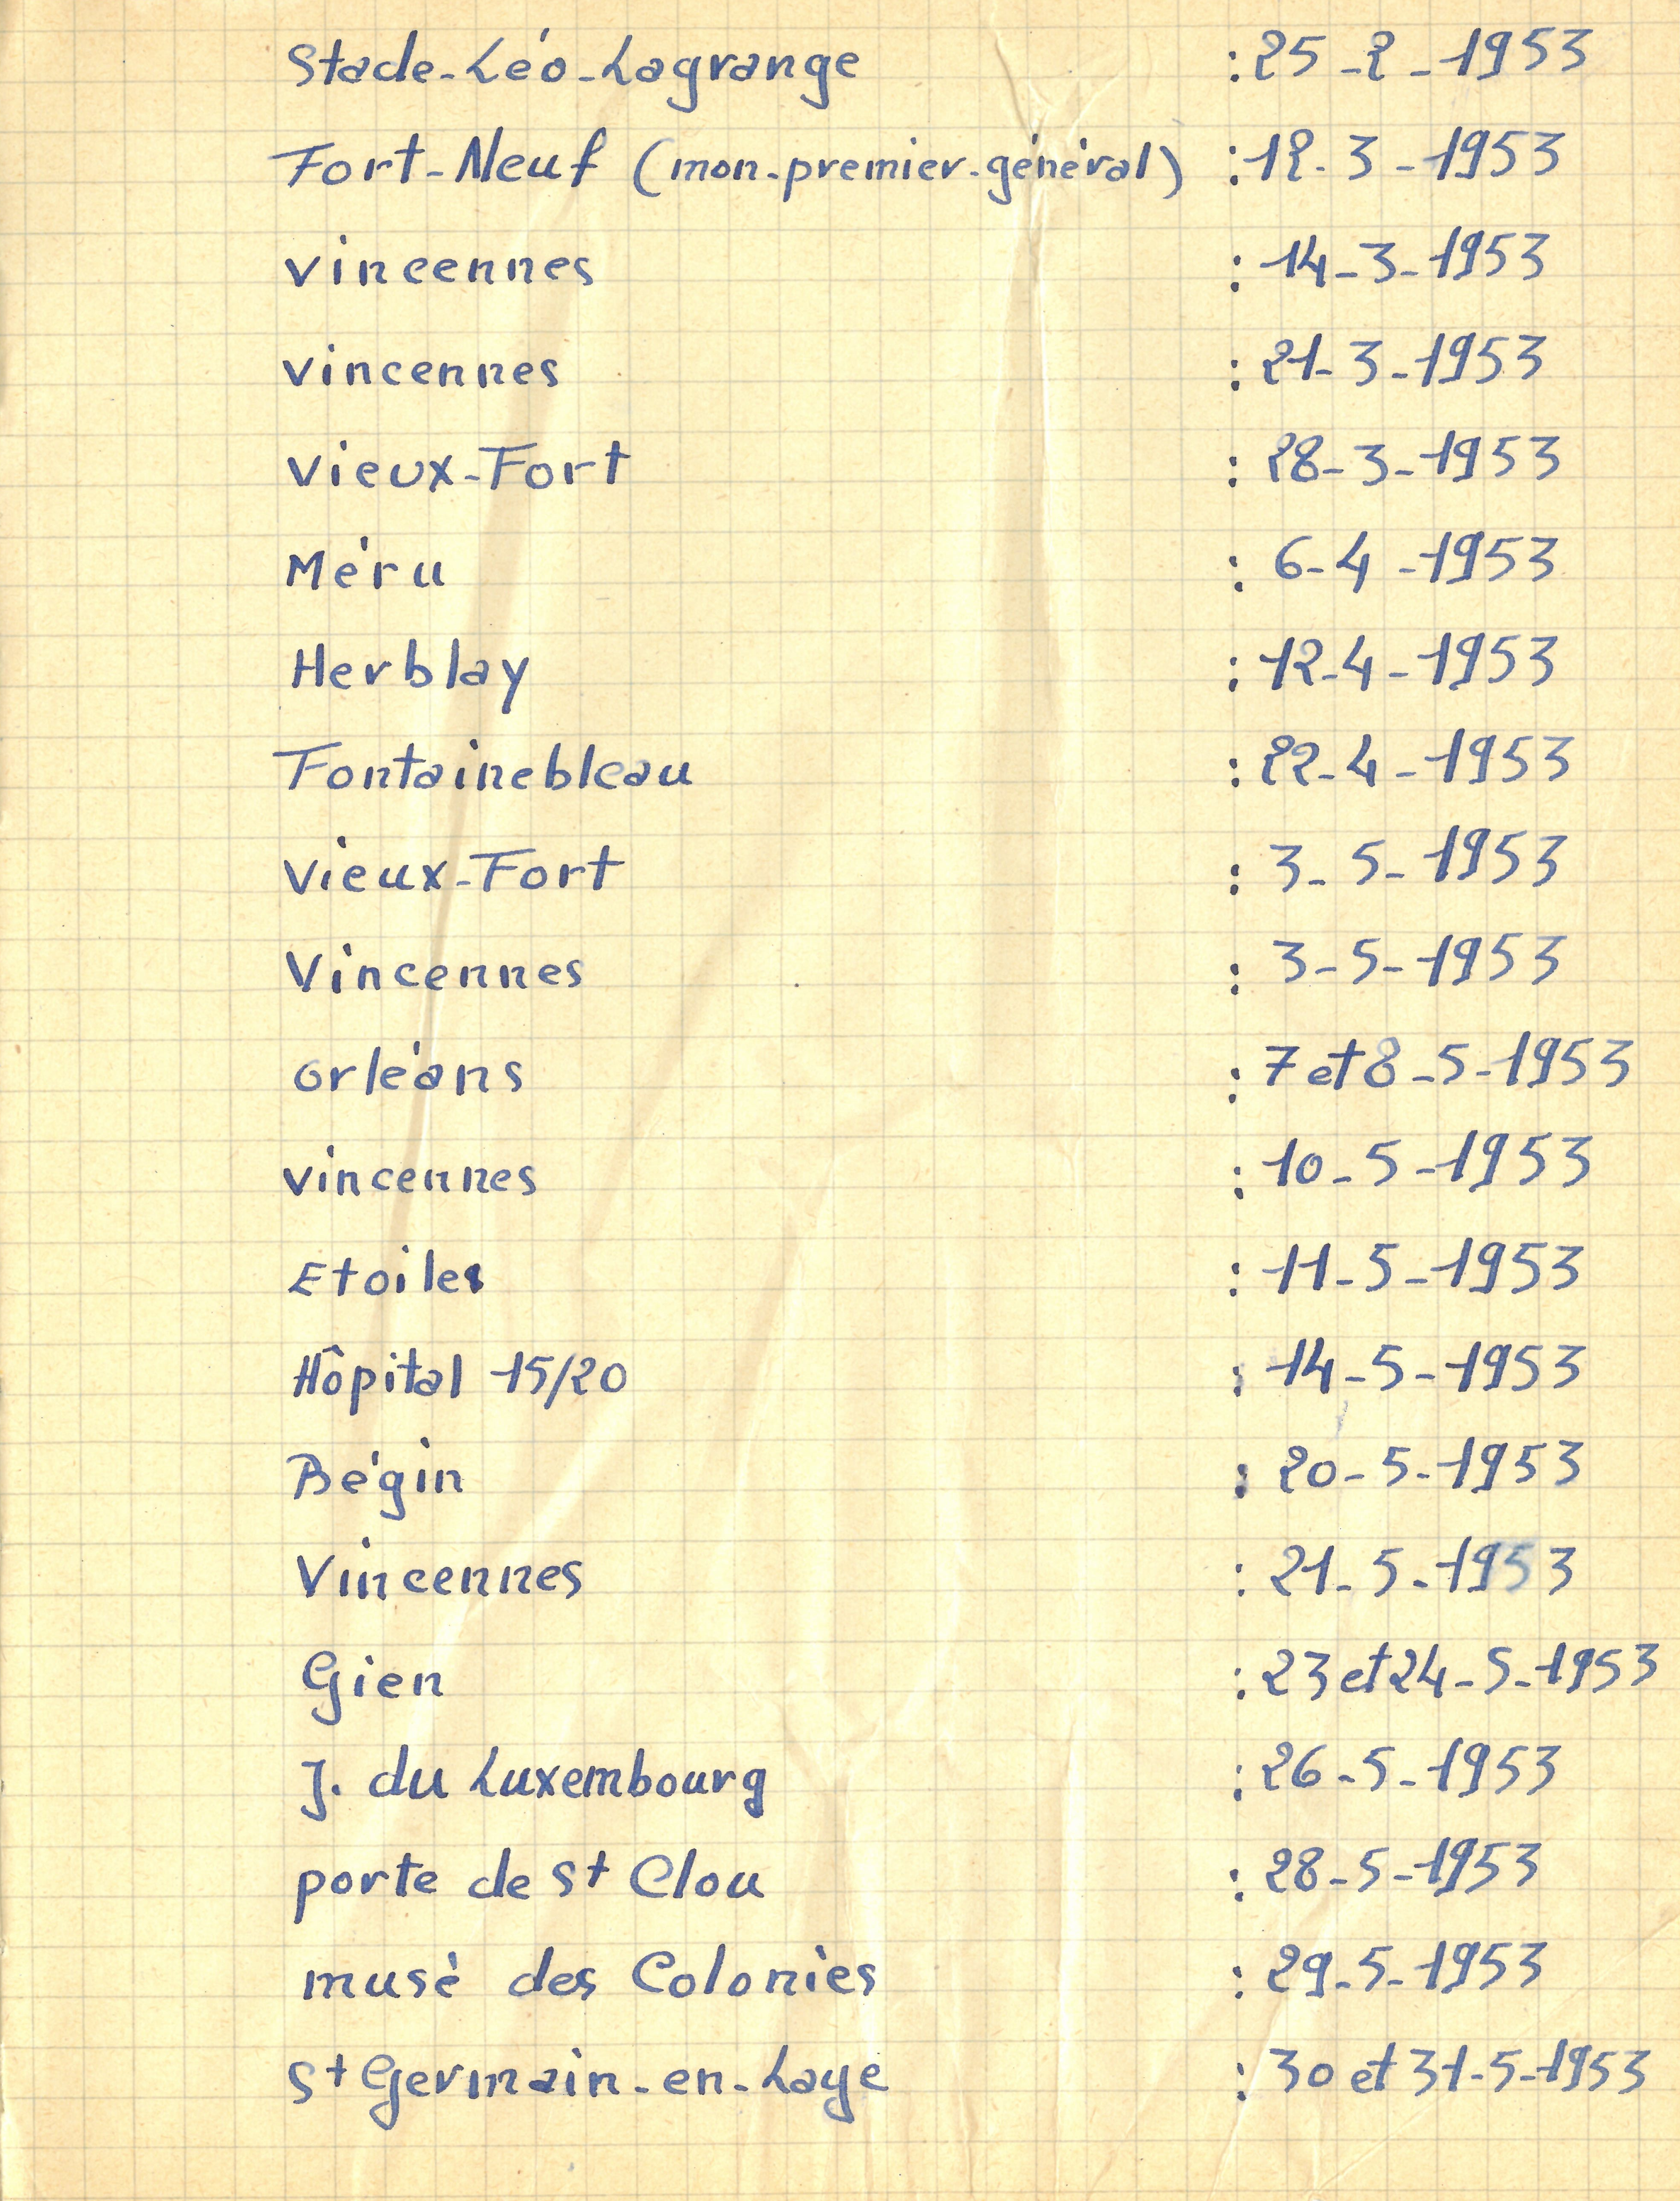 Stade-Léo-Lagrange : 25-2-1953
Fort-Neuf (mon-premier-général) : 12-3-1953
Vincennes : 14-3-1953
Vincennes : 21-3-1953
Vieux-Fort : 28-3-1953
Méru : 6-4-1953
Herblay : 12-4-1953
Fontainebleau : 22-4-1953
Vieux-Fort : 3-5-1953
Vincennes : 3-5-1953
Orléans : 7 et 8-5-1953
Vincennes : 10-5-1953
Etoiles : 11-5-1953
Hôpital 15/20 : 14-5-1953
Bégin : 20-5-1953
Vincennes : 21-5-1953
Gien : 23 et 24-5-1953
J. du Luxembourg : 26-5-1953
porte de St Clou : 28-5-1953
musé des Colonies : 29-5-1953
St Germain-en-Laye : 30 et 31-5-1953